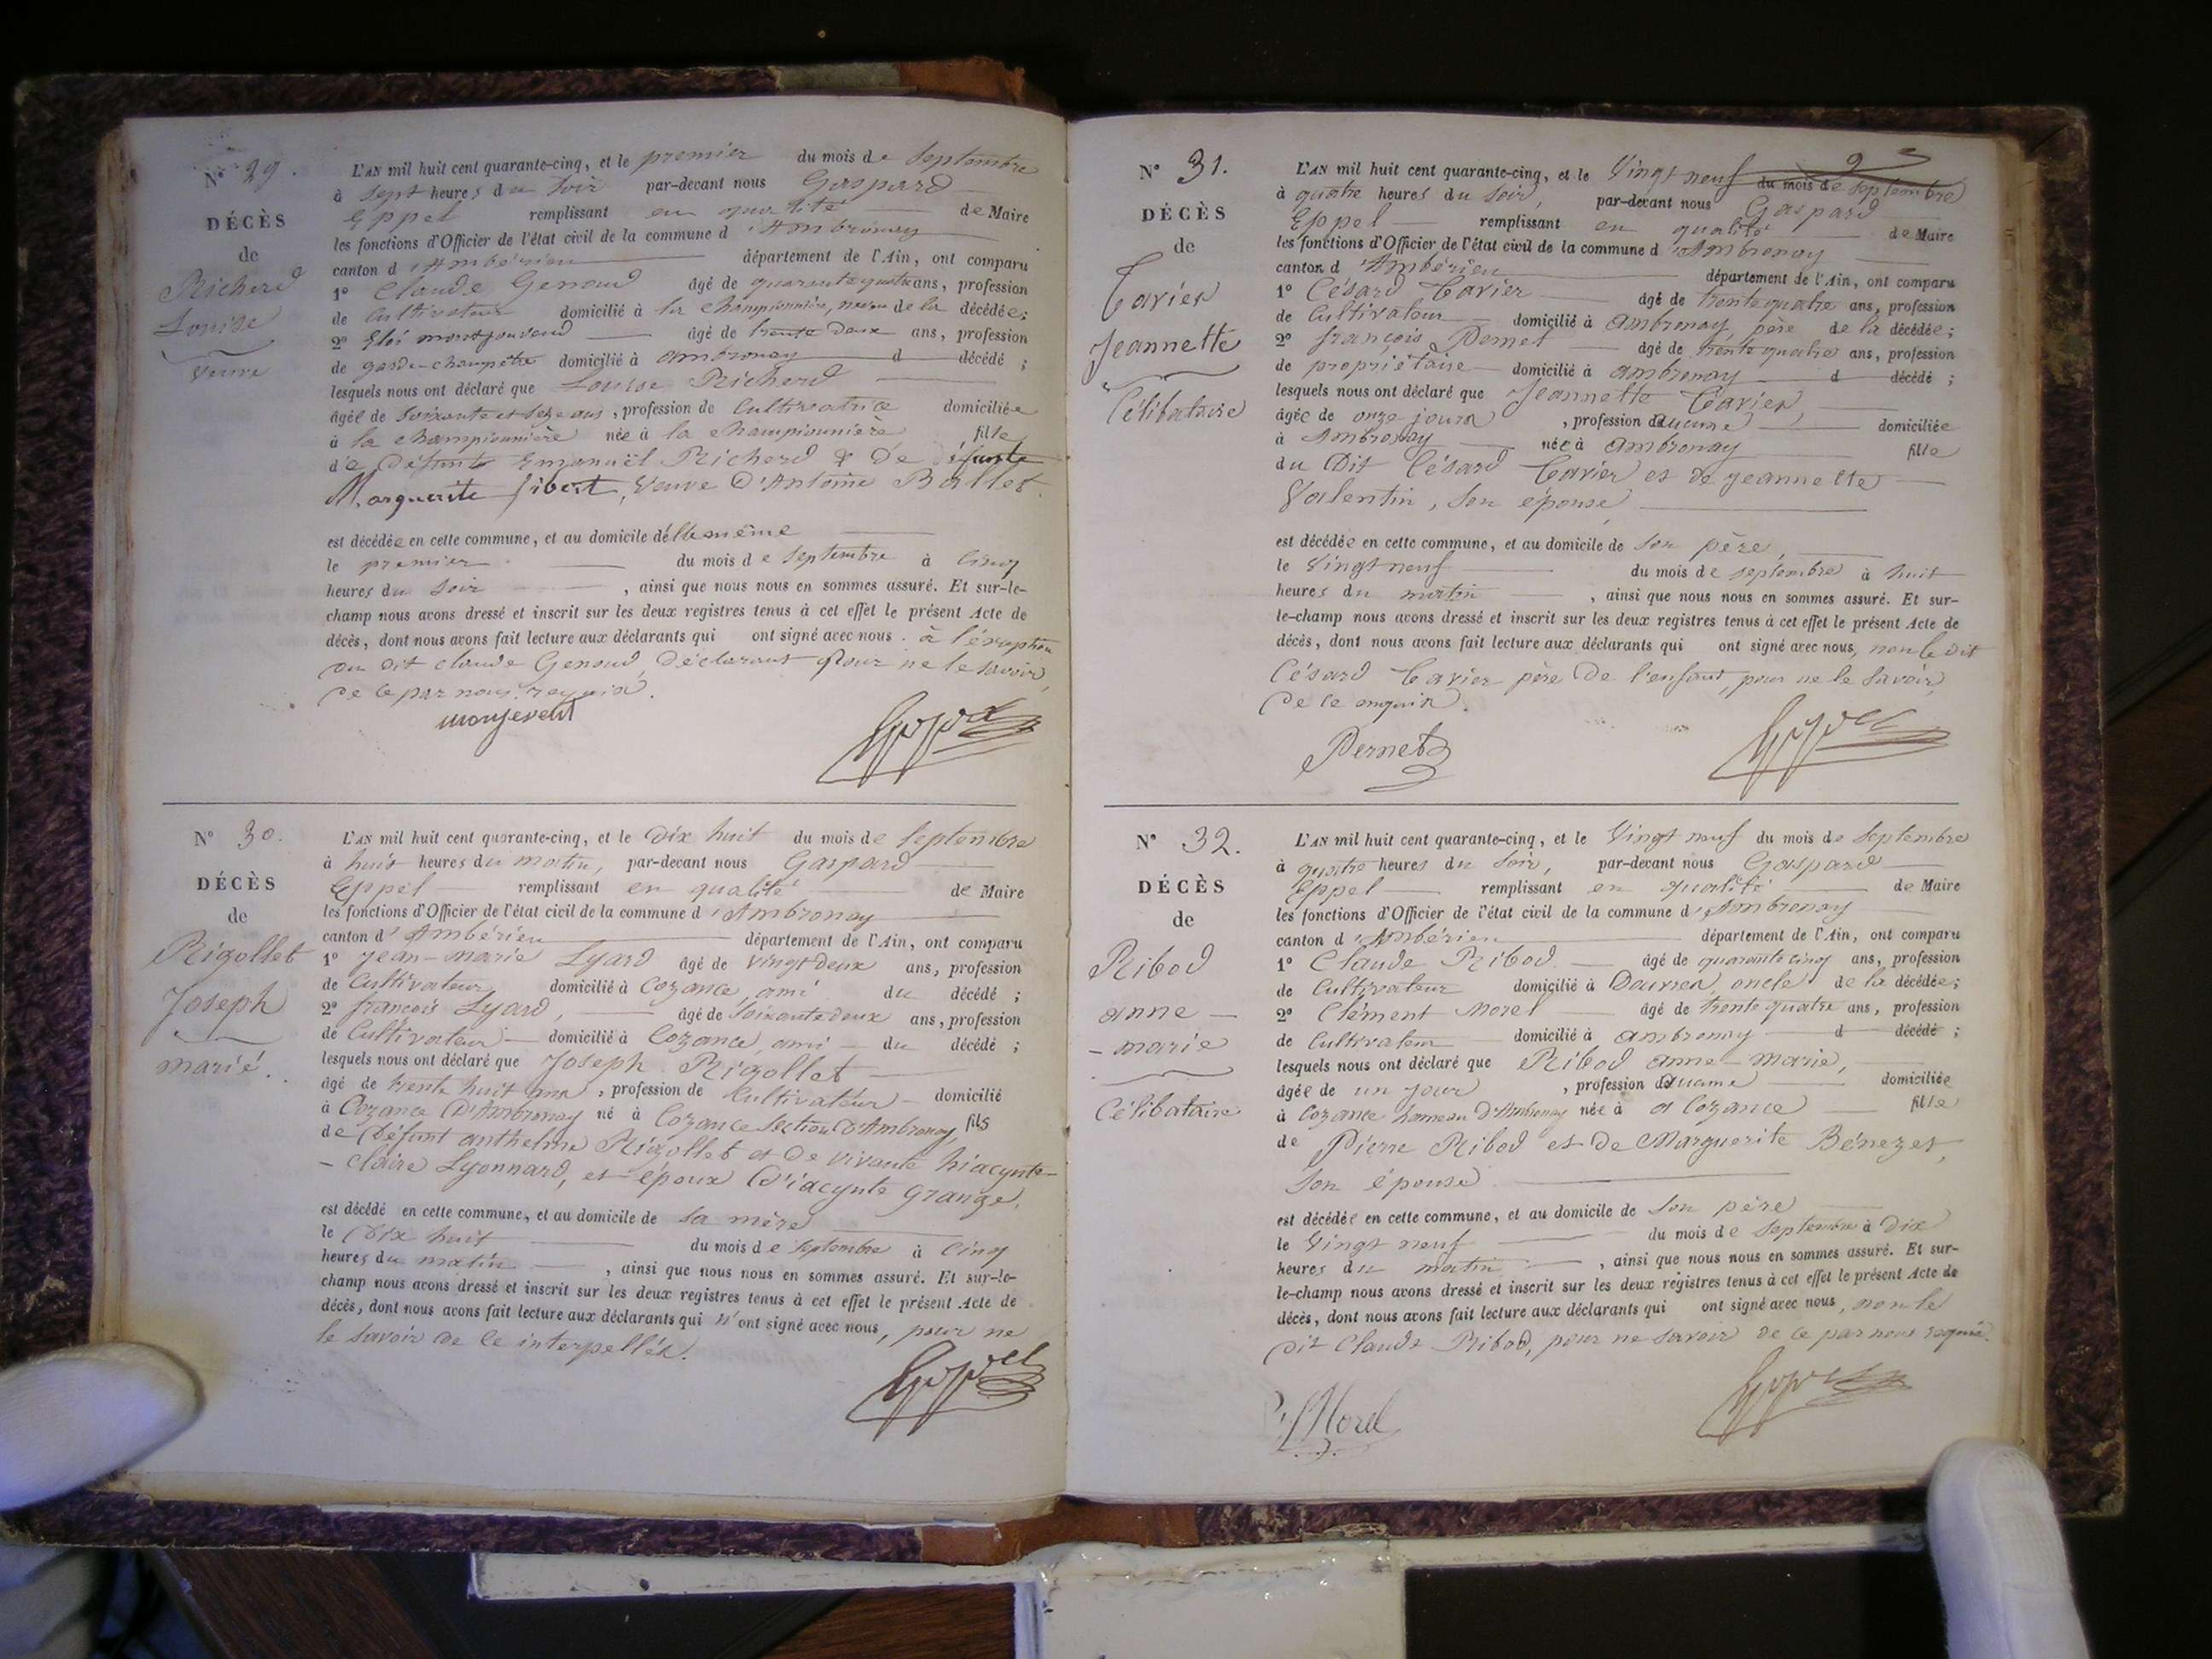 N° 29.
DÉCÈS
de
Richerd
Louise
veuve
L'AN mil huit cent quarante-cinq, et le premier du mois de septembre
à sept heures du soir par-devant nous Gaspard
Eppel remplissant en qualité de Maire
les fonctions d'Officier de l'état civil de la commune d'Ambronay
canton d'Ambérieu département de l'Ain, ont comparu
1° Claude Genoud âgé de quarante quatre ans, profession
de Cultivateur domicilié à la Championnière, neveu de la décédée;
2° Eloi montjouvend âgé de trente deux ans, profession
de garde-champêtre domicilié à ambronay d décédé ;
lesquels nous ont déclaré que Louise Richerd
âgée de soixante et seze ans, profession de Cultivatrice domiciliée
à la Championnière née à la Championnière fille
de défunts Emanuël Richerd & de défunte
Marguerite Jibert, Veuve d'Antoine Ballet.
est décédée en cette commune, et au domicile d'elle même
le premier du mois de septembre à Cinq
heures du soir, ainsi que nous nous en sommes assuré. Et sur-le-
champ nous avons dressé et inscrit sur les deux registres tenus à cet effet le présent Acte de
décès, dont nous avons fait lecture aux déclarants qui ont signé avec nous. à l'éxception
du dit claude Genoud, déclarant pour ne le savoir,
de ce par nous requis.
N° 30.
DÉCÈS
de
Rigollet
Joseph
marié.
L'AN mil huit cent quarante-cinq, et le dix huit du mois de septembre
à huit heures du matin, par-devant nous Gaspard
Eppel remplissant en qualité de Maire
les fonctions d'Officier de l'état civil de la commune d'Ambronay
canton d'Ambérieu département de l'Ain, ont comparu
1° Jean-marie Lyard âgé de vingt deux ans, profession
de Cultivateur domicilié à Cozance, ami du décédé ;
2° françois Lyard, âgé de soixante deux ans, profession
de Cultivateur domicilié à Cozance, ami du décédé ;
lesquels nous ont déclaré que Joseph Rigollet
âgé de trente huit ans, profession de Cultivatéur domicilié
à Cozance d'Ambronay né à Cozance section d'Ambronay, fils
de défunt anthelme Rigollet et de vivante hiacynte-
-claire Lyonnard, et époux d'iacynte grange.
est décédé en cette commune, et au domicile de sa mère
le dix huit du mois de septembre à Cinq
heures du matin, ainsi que nous nous en sommes assuré. Et sur-le-
champ nous avons dressé et inscrit sur les deux registres tenus à cet effet le présent Acte de
décès, dont nous avons fait lecture aux déclarants qui n'ont signé avec nous, pour ne
le savoir de ce interpellés.
Eppel
N° 31.
DÉCÈS
de
Tavier
Jeannette
Célibataire
L'AN mil huit cent quarante-cinq, et le Vingt neuf du mois de septembre
à quatre heures du soir, par-devant nous Gaspard
Eppel remplissant en qualité de Maire
les fonctions d'Officier de l'état civil de la commune d'Ambronay
canton d'Ambérieu département de l'Ain, ont comparu
1° César Tavier âgé de trente quatre ans, profession
de Cultivateur domicilié à Ambronay, père de la décédée ;
2° françois Pernet âgé de trente quatre ans, profession
de propriétaire domicilié à ambronay d décédé ;
lesquels nous ont déclaré que Jeannette Tavier,
âgée de onze jours, profession d'aucune domiciliée
à Ambronay née à ambronay fille
du dit César Tavier et de jeannette
Valentin, son épouse,
est décédée en cette commune, et au domicile de son père,
le Vingt neuf du mois de septembre à huit
heures du matin, ainsi que nous nous en sommes assuré. Et sur-
le-champ nous avons dressé et inscrit sur les deux registres tenus à cet effet le présent Acte de
décès, dont nous avons fait lecture aux déclarants qui ont signé avec nous, non le dit
César Tavier père de l'enfant, pour ne le savoir,
de ce enquis.
Pernet
Eppel
N° 32.
DÉCÈS
de
Ribod
anne
-marie
Célibataire
L'AN mil huit cent quarante-cinq, et le Vingt neuf du mois de Septembre
à quatre heures du soir, par-devant nous Gaspard
Eppel remplissant en qualité de Maire
les fonctions d'Officier de l'état civil de la commune d'Ambronay
canton d'Ambérieu département de l'Ain, ont comparu
1° Claude Ribod âgé de quarante cinq ans, profession
de Cultivateur domicilié à Douvres, oncle de la décédée;
2° Clément Morel âgé de trente quatre ans, profession
de Cultivateur domicilié à ambronay d décédé ;
lesquels nous ont déclaré que Ribod anne-marie,
âgée de un jour, profession d'aucune domiciliée
à Cozance hameau d'Ambronay née à Cozance fille
de Pierre Ribod et de Marguerite Bénezet,
son épouse
est décédée en cette commune, et au domicile de son père
le Vingt neuf du mois de septembre à dix
heures du matin, ainsi que nous nous en sommes assuré. Et sur-
le-champ nous avons dressé et inscrit sur les deux registres tenus à cet effet le présent Acte de
décès, dont nous avons fait lecture aux déclarants qui ont signé avec nous, non le
dit Claude Ribod, pour ne savoir de ce par nous requis.
Morel
Eppel